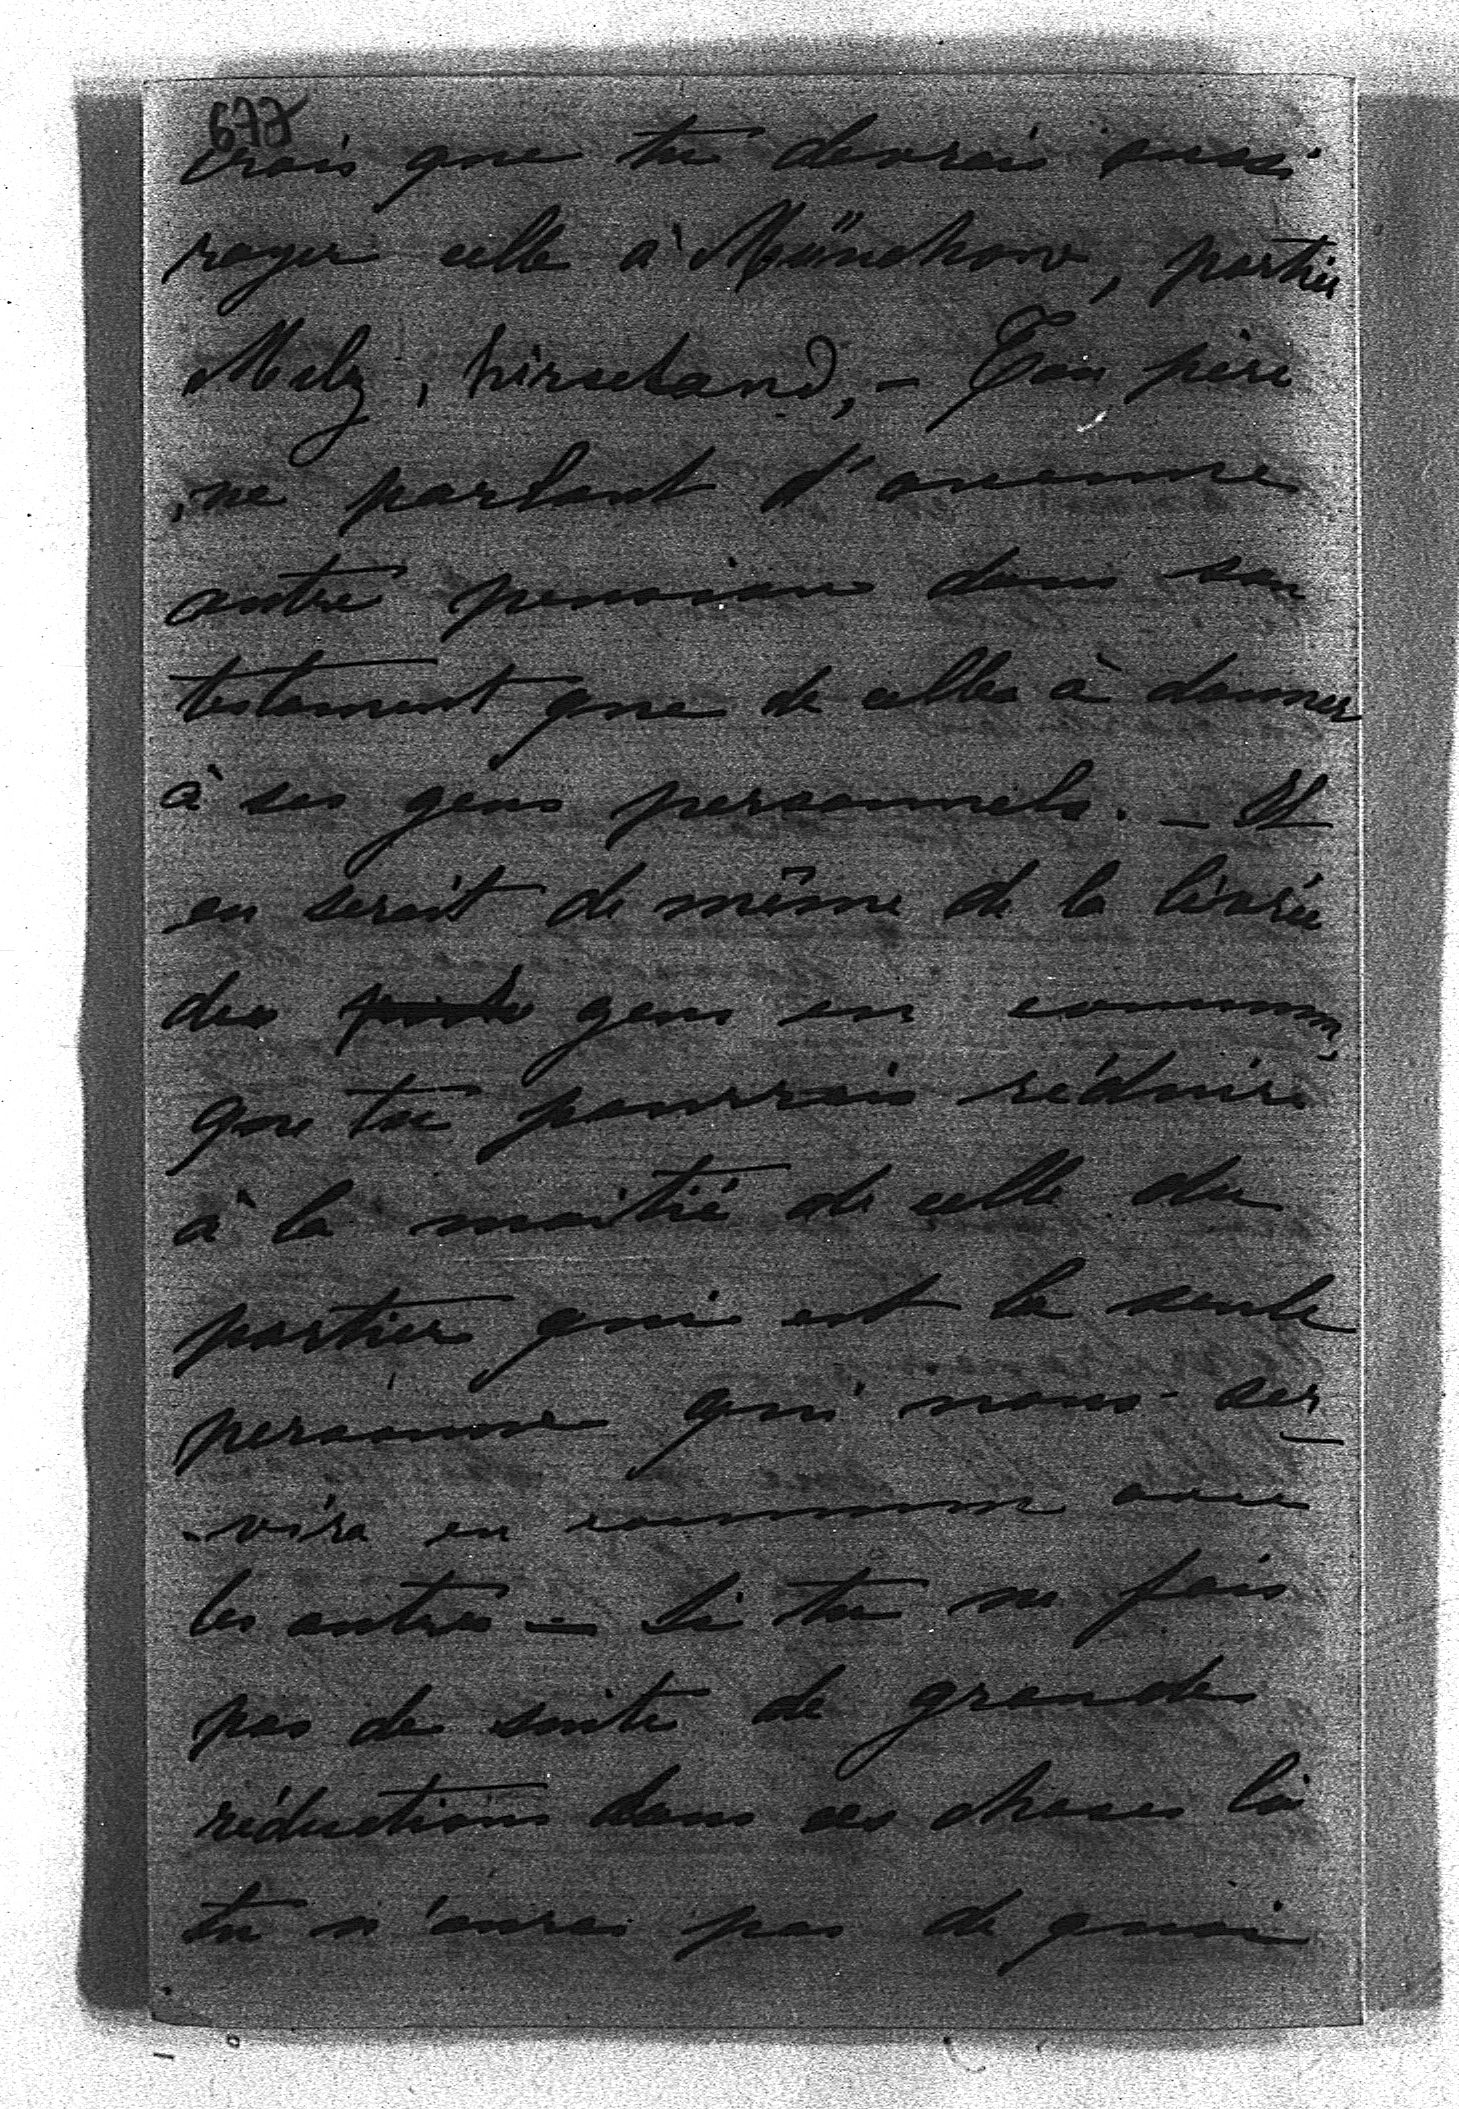 677
crois que tu devrais aussi
rayer celle à Münchow, portier
Melz, Hirseland, - Ton père
ne parlant d'aucune
autre pension dans son
testament que de celles à donner
à ses gens personnels. - Il
en serait de même de la livrée
des gens en commun,
que tu pourrais réduire
à la moitié de celle du
portier qui est la seule
personne qui nous ser-
-vira en commun avec
les autres - Si tu ne fais
pas de suite de grandes
réductions dans ces choses là
tu n'auras pas de quoi